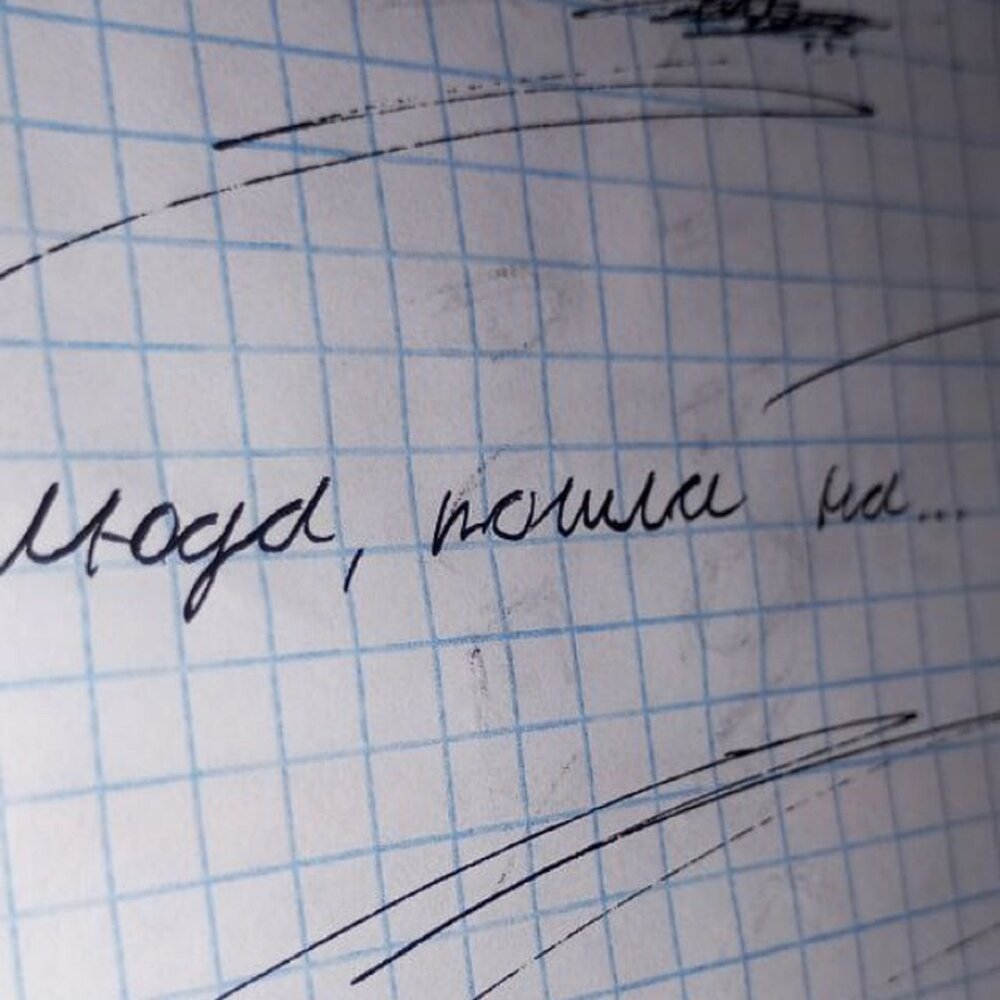 Люда, пошла на...